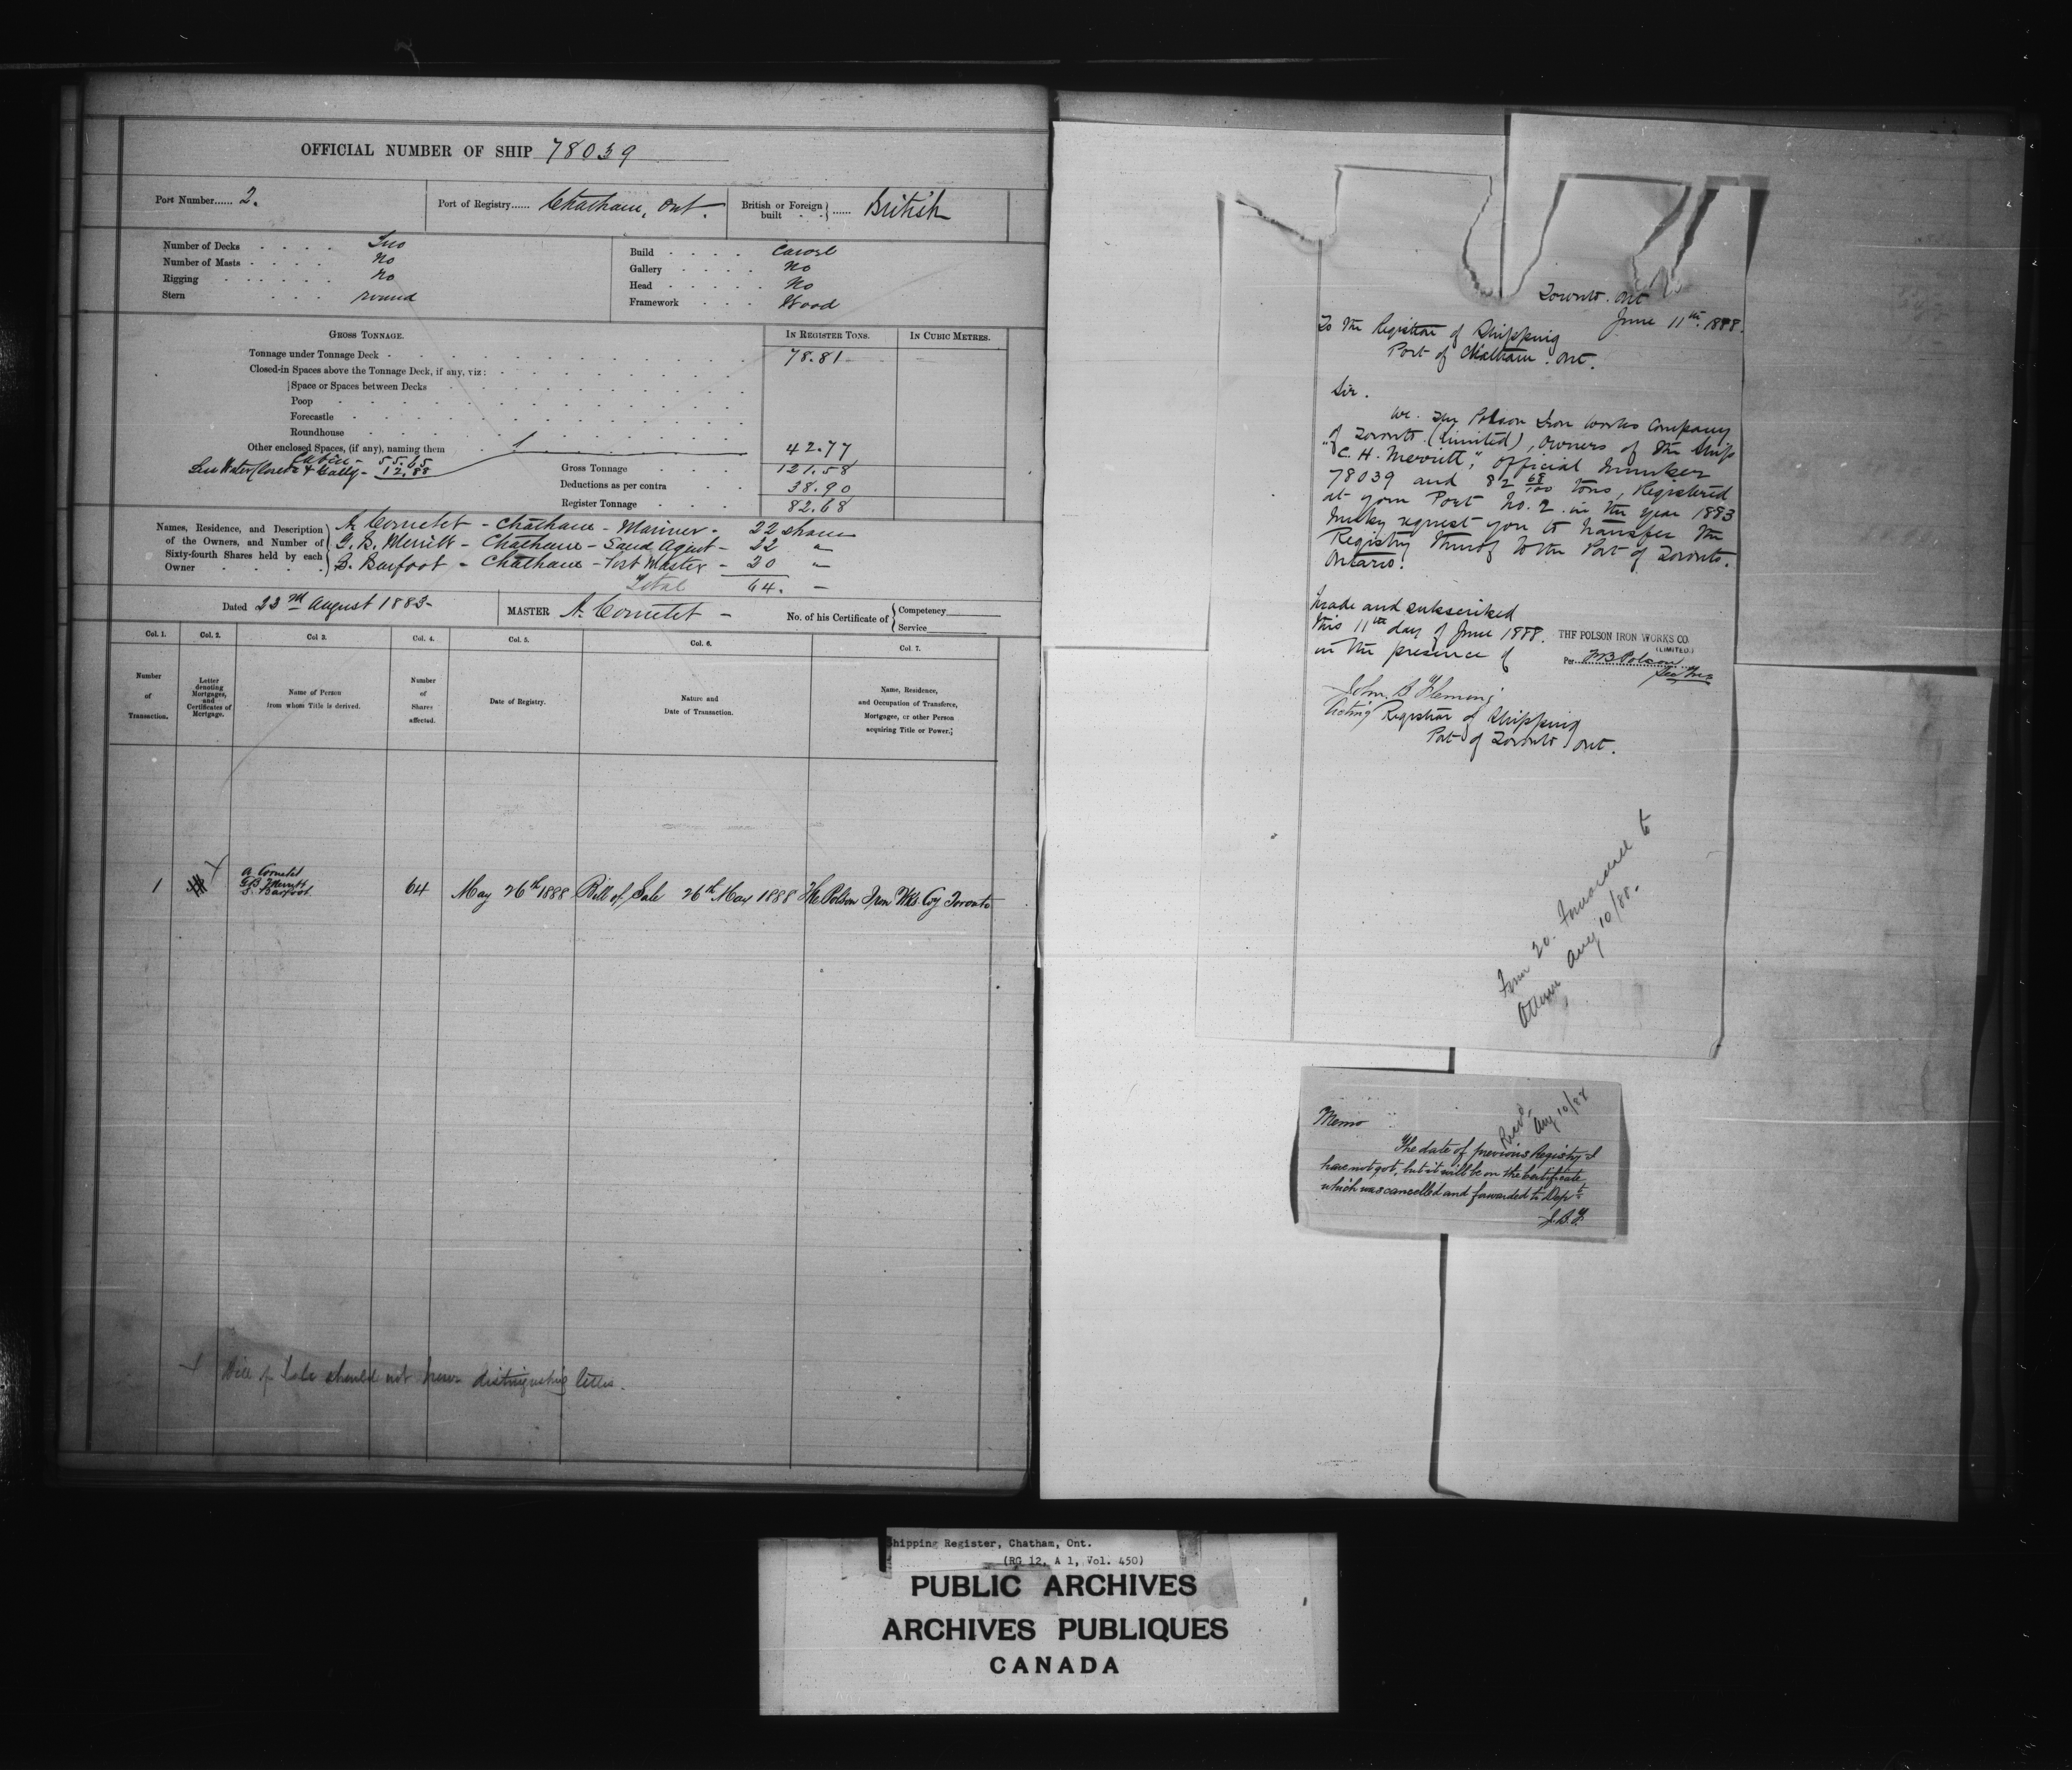 OFFICIAL NUMBER OF SHIP 78039
Port Number...... 2.
Port of Registry...... Chatham, Ont.
British or Foreign built ...... British
Number of Decks Two
Number of Masts No
Rigging No
Stern round
Build Carvel
Gallery No
Head No
Framework Wood
GROSS TONNAGE. IN REGISTER TONS. IN CUBIC METRES.
Tonnage under Tonnage Deck 78.81
Closed-in Spaces above the Tonnage Deck, if any, viz:
Space or Spaces between Decks
Poop
Forecastle
Roundhouse
Other enclosed Spaces, (if any), naming them 42.77
Cabin - 55.65
Water Closets & Gally - 12.88
Gross Tonnage 121.58
Deductions as per contra 38.90
Register Tonnage 82.68
Names, Residence, and Description of the Owners, and Number of Sixty-fourth Shares held by each Owner
A. Cornetet - Chatham - Mariner - 22 shares
G. B. Merritt - Chatham - Land Agent - 22 "
S. Barfoot - Chatham - Port Master - 20 "
Total 64. -
Dated 23rd August 1883-
MASTER A. Cornetet -
No. of his Certificate of Competency
Service
Col. 1. Col. 2. Col 3. Col. 4. Col. 5. Col. 6. Col. 7.
Number of Transaction.
Letter denoting Mortgages, and Certificates of Mortgage.
Name of Person from whom Title is derived.
Number of Shares affected.
Date of Registry.
Nature and Date of Transaction.
Name, Residence, and Occupation of Transferee, Mortgagee, or other Person acquiring Title or Power.
1 A Cornetet
G B Merritt
S. Barfoot
64 May 26th 1888 Bill of Sale 26th May 1888 The Polson Iron Wks Coy Toronto
Bill of Sale should not have distinguishing letter.
Toronto. Ont
June 11th. 1888.
To the Registrar of Shipping
Port of Chatham. Ont.
Sir.
We. The Polson Iron Works Company
of Toronto (Limited), owners of the Ship
"C. H. Merritt," official number
78039 and 82 68/100 tons, Registered
at your Port No. 2. in the year 1883
hereby request you to transfer the
Registry thereof to the Port of Toronto.
Ontario.
Made and subscribed
this 11th day of June 1888.
in the presence of
THE POLSON IRON WORKS CO.
(LIMITED.)
Per F B Polson
Sec Treas
John. S Fleming
Acting Registrar of Shipping
Port of Toronto Ont.
Form 20. Forwarded to
Ottawa Aug 10/88.
Memo
Recd. Aug 10/88
The date of previous Registry I
have not got, but it will be on the Certificate
which was cancelled and forwarded to Dept.
J.S.F.
Shipping Register, Chatham, Ont.
(RG 12, A 1, Vol. 450)
PUBLIC ARCHIVES
ARCHIVES PUBLIQUES
CANADA